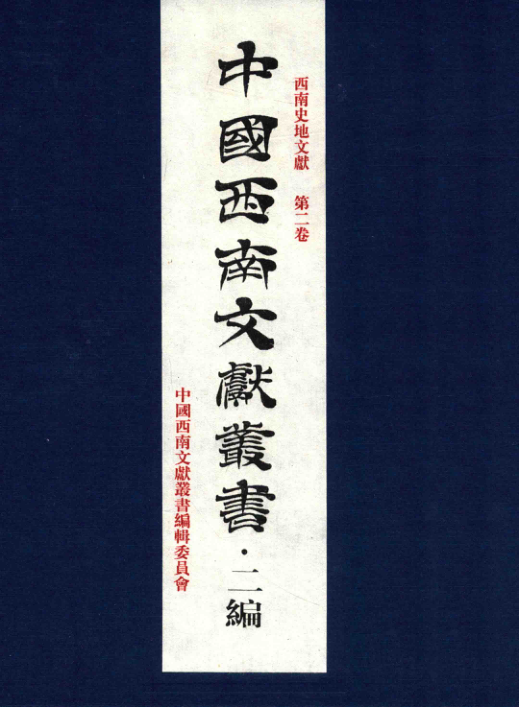 西南史地文獻 第二卷
中國西南文獻叢書·二編
中國西南文獻叢書編輯委員會